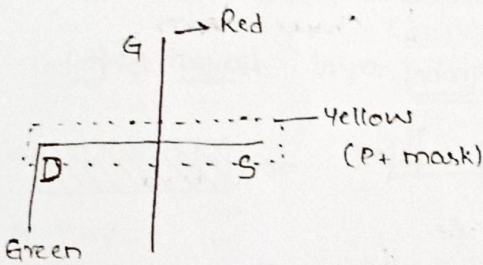 G → Red
Yellow
(P+ mask)
D S
Green